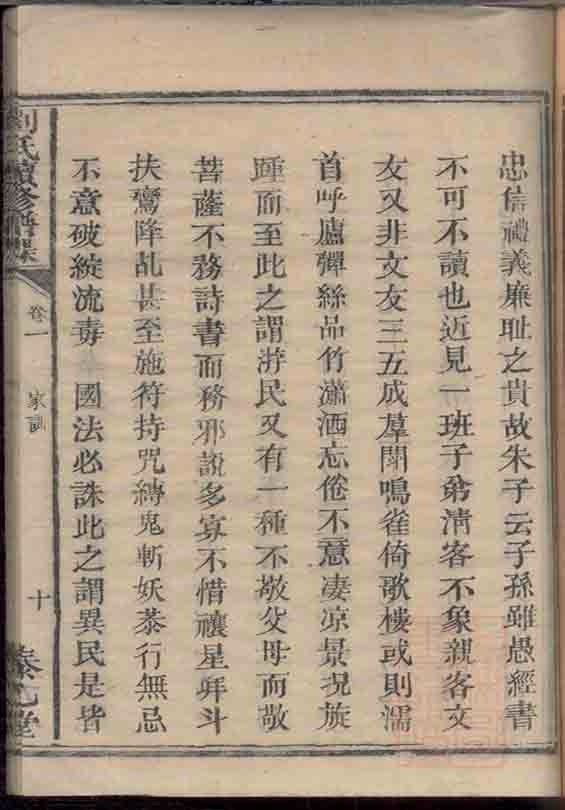 忠信禮義廉耻之貴故朱子云子孫雖愚經書
不可不讀也近見一班子弟清客不象親客文
友又非文友三五成羣閗鳴雀倚歌樓或則濡
首呼廬彈絲品竹瀟洒忘倦不意凄凉景况旋
踵而至此之謂游民又有一種不敬父母而敬
菩薩不務詩書而務邪説多寡不惜禳星拜斗
扶鸞降乩甚至施符持咒縛鬼斬妖恭行無忌
不意破綻流毒 國法必誅此之謂異民是皆
劉氏續修譜
卷一 家訓 十
堂